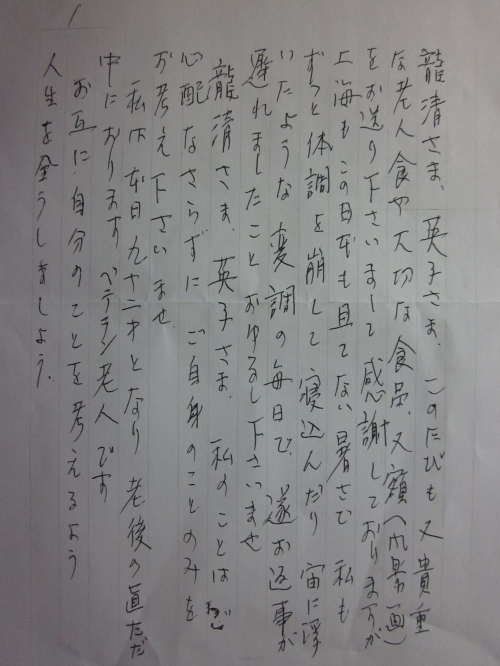 1
龍清さま、英子さま、このたびも又貴重
な老人食や大切な食品、又額(帆影画)
をお送り下さいまして感謝しておりますが
上海もこの日本も且てない暑さで 私も
ずっと体調を崩して寝込んだり 宙に浮
いたような変調の毎日で、遂お返事が
遅れましたこと おゆるし下さいませ
龍清さま、英子さま、私のことは
心配なさらずに ご自身のことのみを
お考え下さいませ
私は本日九十二才となり 老後の真ただ
中におります ベテラン老人です
お互に自分のことを考えるよう
人生を全うしましょう.